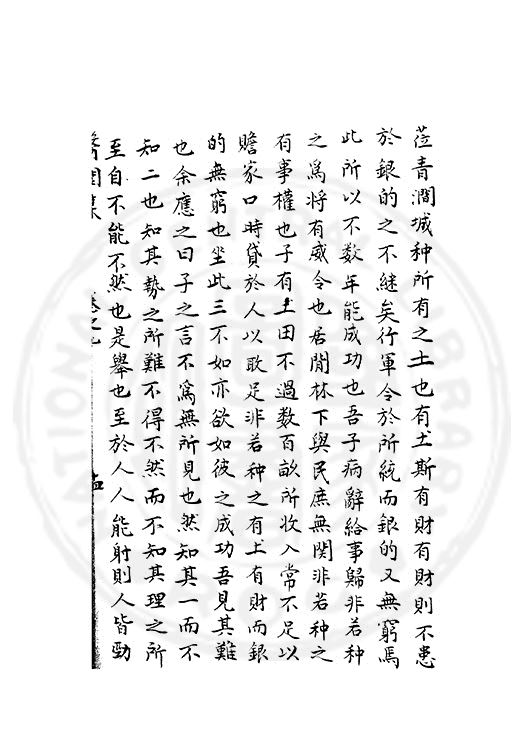 莅青澗城种所有之土也有土斯有財有財則不患
於銀的之不継矣行軍令於所統而銀的又無窮焉
此所以不数年能成功也吾子病辭給事歸非若种
之爲將有威令也居閒林下與民庶無関非若种之
有事權也子有土田不過数百畝所收入常不足以
贍家口時貸於人以取足非若种之有土有財而銀
的無窮也坐此三不如亦欲如彼之成功吾見其難
也余應之曰子之言不爲無所見也然知其一而不
知二也知其勢之所難不得不然而不知其理之所
至自不能不然也是舉也至於人人能射則人皆勁
卷之九